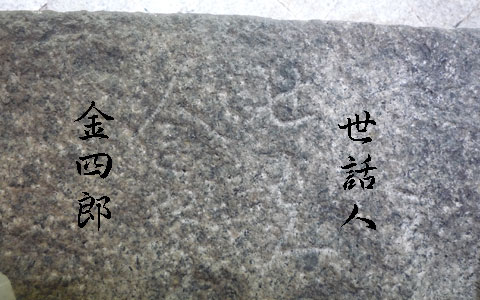 世話人
金四郎